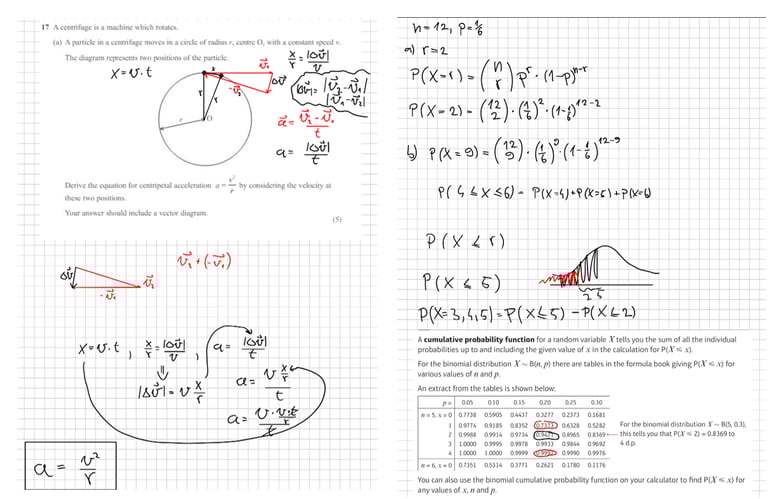 17 A centrifuge is a machine which rotates.
(a) A particle in a centrifuge moves in a circle of radius r, centre O, with a constant speed v.
The diagram represents two positions of the particle.
x = v⃗ · t
x
v⃗₁
-v⃗₂
Δv⃗
r
r
r
O
x/r = |Δv⃗|/v
|Δv⃗| = |v⃗₂-v⃗₁|
|v⃗₁-v⃗₂|
a⃗ = (v⃗₂ - v⃗₁)/t
a = |Δv⃗|/t
Derive the equation for centripetal acceleration a = v²/r by considering the velocity at
these two positions.
Your answer should include a vector diagram.
(5)
v⃗₂ + (-v⃗₁)
Δv⃗
v⃗₂
-v⃗₁
x = v · t , x/r = |Δv⃗|/v , a = |Δv⃗|/t
|Δv⃗| = v x/r
a = (v x/r)/t
a = (v · v·t/r)/t
a = v²/r
n = 12, p = 1/6
a) r = 2
P(X=r) = (n r) pʳ · (1-p)ⁿ⁻ʳ
P(X=2) = (12 2) · (1/6)² · (1-1/6)¹²⁻²
b) P(X=9) = (12 9) · (1/6)⁹ · (1-1/6)¹²⁻⁹
P(4 ≤ X ≤ 6) = P(X=4)+P(X=5)+P(X=6)
P(X ≤ r)
P(X ≤ 5)
2 5
P(X=3,4,5) = P(X≤5) - P(X≤2)
A cumulative probability function for a random variable X tells you the sum of all the individual
probabilities up to and including the given value of x in the calculation for P(X ≤ x).
For the binomial distribution X ~ B(n, p) there are tables in the formula book giving P(X ≤ x) for
various values of n and p.
An extract from the tables is shown below:
p = 0.05 0.10 0.15 0.20 0.25 0.30
n = 5, x = 0 0.7738 0.5905 0.4437 0.3277 0.2373 0.1681
1 0.9774 0.9185 0.8352 0.7373 0.6328 0.5282
2 0.9988 0.9914 0.9734 0.9421 0.8965 0.8369
3 1.0000 0.9995 0.9978 0.9933 0.9844 0.9692
4 1.0000 1.0000 0.9999 0.9997 0.9990 0.9976
n = 6, x = 0 0.7351 0.5314 0.3771 0.2621 0.1780 0.1176
For the binomial distribution X ~ B(5, 0.3),
this tells you that P(X ≤ 2) = 0.8369 to
4 d.p.
You can also use the binomial cumulative probability function on your calculator to find P(X ≤ x) for
any values of x, n and p.